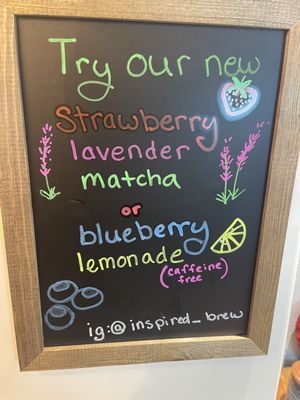 Try our new
Strawberry
lavender
matcha
or
blueberry
lemonade
(caffeine
free)
ig:@inspired_brew